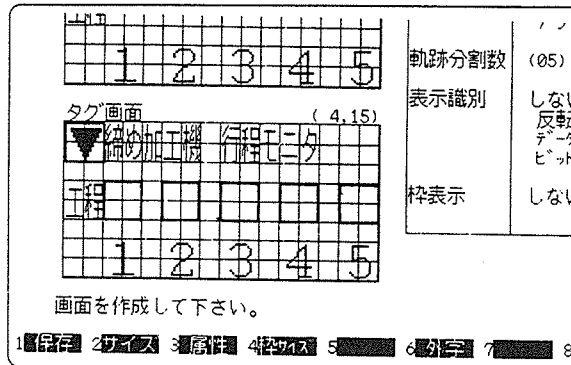 工程
1 2 3 4 5
タグ画面 ( 4,15)
締め加工機 行程モニタ
工程
1 2 3 4 5
画面を作成して下さい。
1 保存 2 サイズ 3 属性 4 枠サイズ 5 6 外字 7 8
軌跡分割数 (05)
表示識別 しない
反転
データ
ビット
枠表示 しない